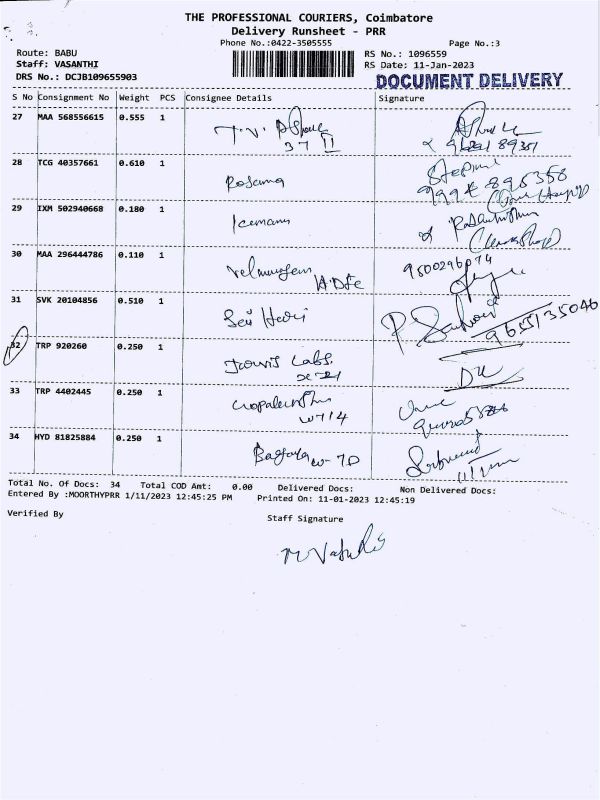 THE PROFESSIONAL COURIERS, Coimbatore
Delivery Runsheet - PRR
Phone No.:0422-3505555 Page No.:3
Route: BABU RS No.: 1096559
Staff: VASANTHI RS Date: 11-Jan-2023
DRS No.: DCJB109655903 DOCUMENT DELIVERY
S No Consignment No Weight PCS Consignee Details Signature
27 MAA 568556615 0.555 1
37 11
28 TCG 40357661 0.610 1
Rosama
29 IXM 502940668 0.180 1
Icemann
30 MAA 296444786 0.110 1 9500296074
Velmurugan
31 SVK 20104856 0.510 1
Sei Hari 9655135046
32 TRP 920260 0.250 1
Labs.
33 TRP 4402445 0.250 1
W714
34 HYD 81825884 0.250 1
W-7D
Total No. Of Docs: 34 Total COD Amt: 0.00 Delivered Docs: Non Delivered Docs:
Entered By :MOORTHYPRR 1/11/2023 12:45:25 PM Printed On: 11-01-2023 12:45:19
Verified By Staff Signature